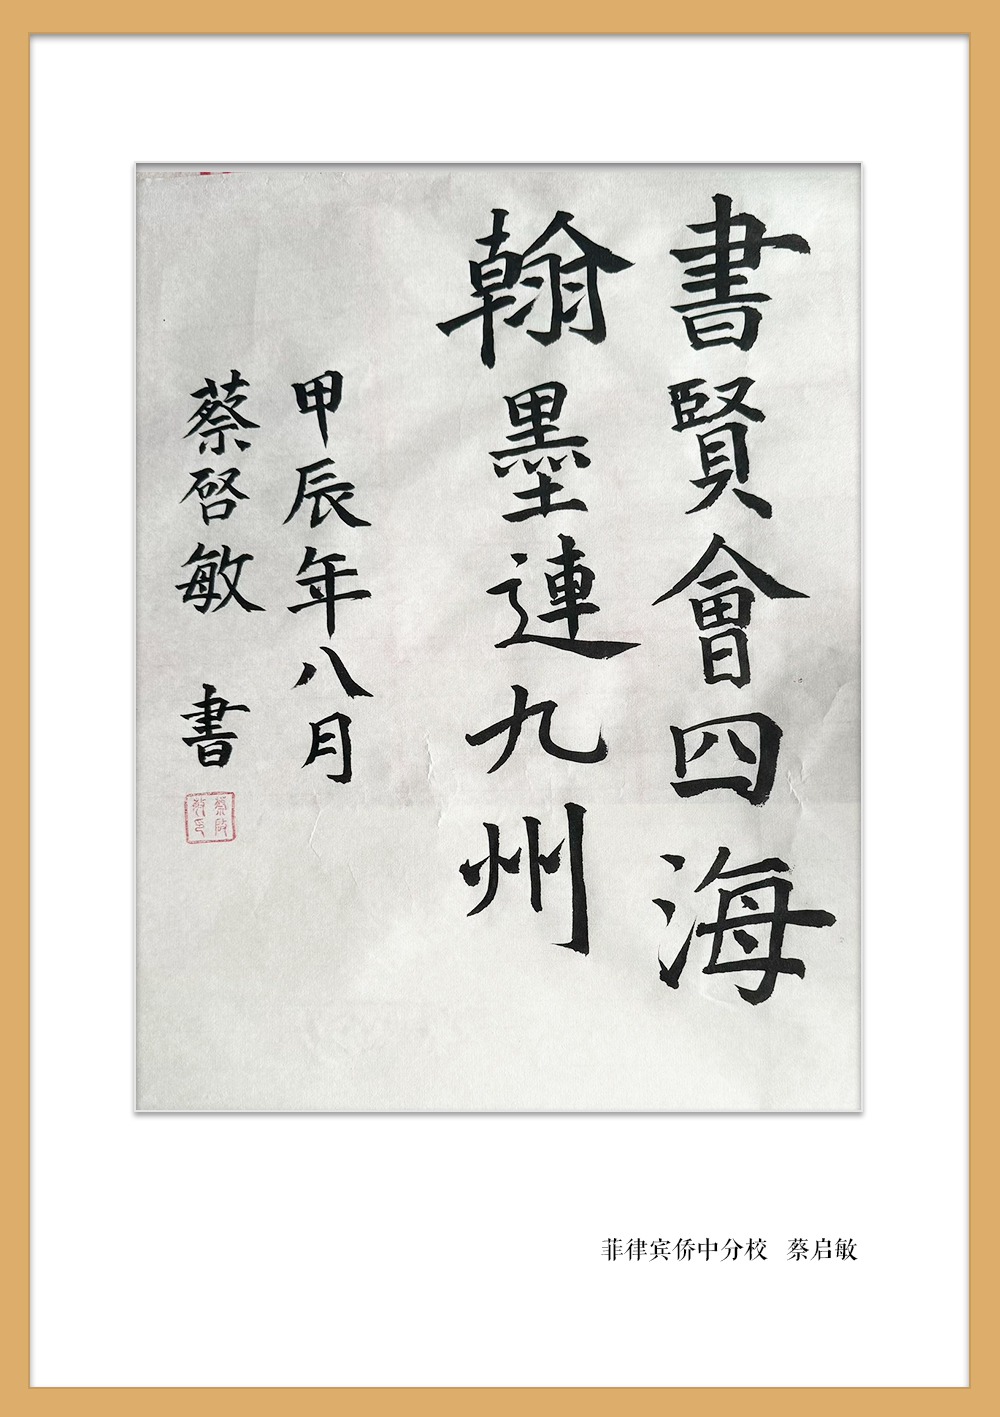 書賢會四海
翰墨連九州
甲辰年八月
蔡啓敏 書
菲律宾侨中分校 蔡启敏